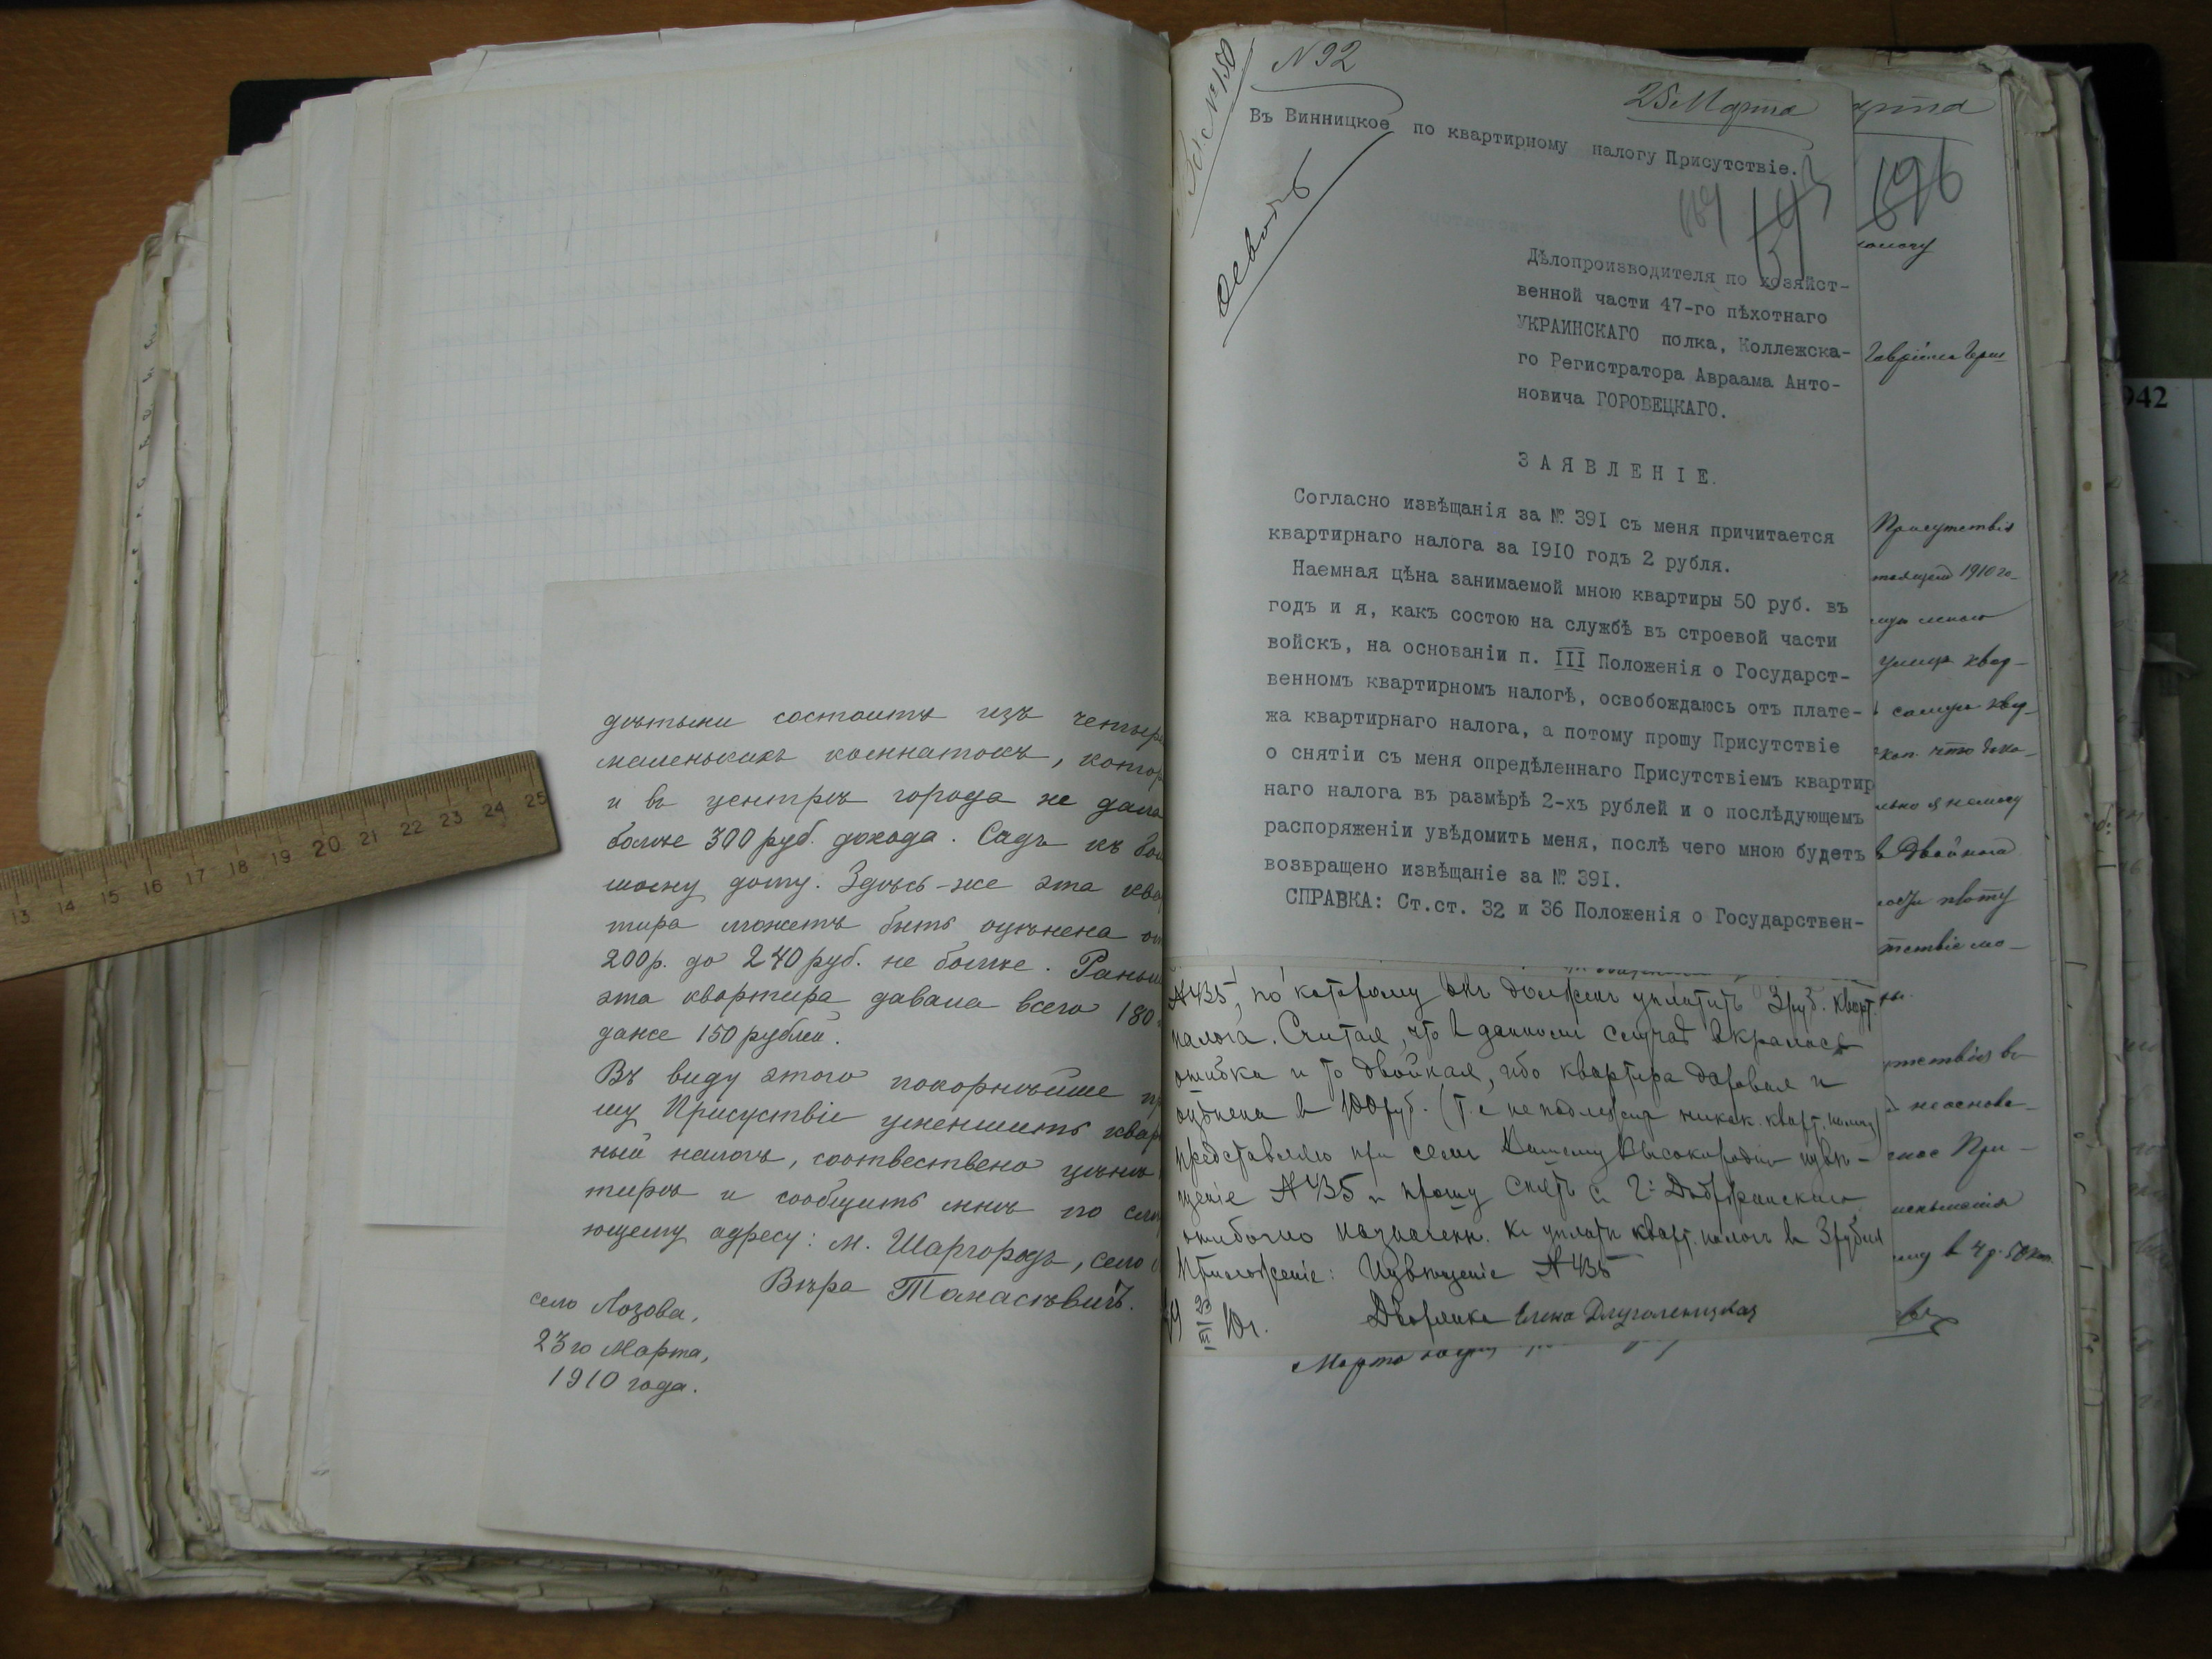 дѣтьми состоитъ изъ четыре
маленькихъ комнатокъ, котор
и въ центрѣ города не дала
болѣе 300 руб. дохода. Садъ къ
моему дому. Здѣсь-же эта квар
тира можетъ быть оцѣнена от
200 р. до 240 руб. не болѣе. Раньш
эта квартира давала всего 180
даже 150 рублей.
Въ виду этого покорнѣйше пр
шу Присуствіе уменшить квар
ный налогъ, соотвествено цѣнѣ
тиры и сообщить мнѣ по слѣд
ющему адресу: м. Шаргородъ, село
Вѣра Танасѣвичъ.
село Лозова,
23го Марта,
1910 года.
№ 150
N 92
25 Марта
Въ Винницкое по квартирному налогу Присутствіе.
освоб
169 143
Дѣлопроизводителя по хозяйст-
венной части 47-го пѣхотнаго
УКРАИНСКАГО полка, Коллежска-
го Регистратора Авраама Анто-
новича ГОРОВЕЦКАГО.
ЗАЯВЛЕНІЕ.
Согласно извѣщанія за № 39I съ меня причитается
квартирнаго налога за I9I0 годъ 2 рубля.
Наемная цѣна занимаемой мною квартиры 50 руб. въ
годъ и я, какъ состою на службѣ въ строевой части
войскъ, на основаніи п. III Положенія о Государст-
венномъ квартирномъ налогѣ, освобождаюсь отъ плате-
жа квартирнаго налога, а потому прошу Присутствіе
о снятіи съ меня опредѣленнаго Присутствіемъ квартир
наго налога въ размѣрѣ 2-хъ рублей и о послѣдующемъ
распоряженіи увѣдомить меня, послѣ чего мною будетъ
возвращено извѣщаніе за № 39I.
СПРАВКА: Ст.ст. 32 и 36 Положенія о Государствен-
№435, по которому онъ долженъ уплатить 3 руб. кварт.
налога. Считая, что в данном случаѣ вкралась
ошибка и то двойная, ибо квартира даровая и
оцѣнена в 100 руб. (т. е не подлежит никак. кварт. налогу)
представляю при семъ Вашему Высокородію извѣ-
щеніе №435 и прошу снять с г:
ошибочно назначен. к уплатѣ кварт. налог в 3 рубля
Приложеніе: Извѣщеніе №435
23 III 10 г.
Дворянка Елена Длуголенцкая
Марта
арта
696
налогу
Присутствія
1910 го-
улицѣ квар-
самую квар-
коп. что дока-
в двойнаго
тствіе мо-
утствія в
неоснова-
При-
уменьшенія
в 4 р. 50 коп.
942
13 14 15 16 17 18 19 20 21 22 23 24 25